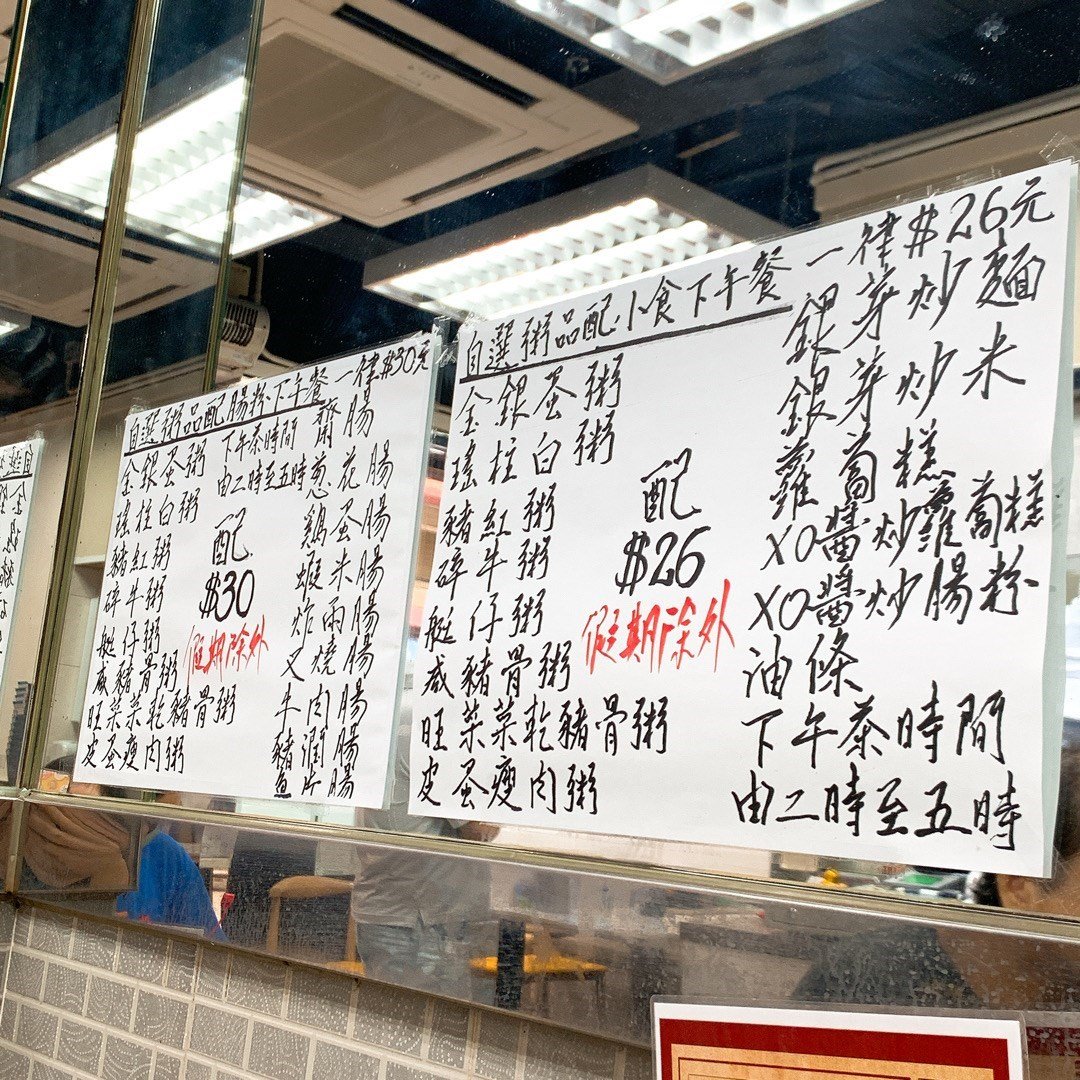 自選粥品配腸粉下午餐一律$30元
金銀蛋粥
瑤柱白粥
豬紅粥
碎牛粥
艇仔粥
咸豬骨粥
旺菜菜乾豬骨粥
皮蛋瘦肉粥
下午茶時間
由二時至五時
配
$30
假期除外
齋腸
葱花腸
鷄蛋腸
蝦米腸
炸両腸
叉燒腸
牛肉腸
豬潤腸
魚片腸
自選粥品配小食下午餐一律$26元
金銀蛋粥
瑤柱白粥
豬紅粥
碎牛粥
艇仔粥
咸豬骨粥
旺菜菜乾豬骨粥
皮蛋瘦肉粥
配
$26
假期除外
銀芽炒麵
銀芽炒米
蘿蔔糕
XO醬炒蘿蔔糕
XO醬炒腸粉
油條
下午茶時間
由二時至五時